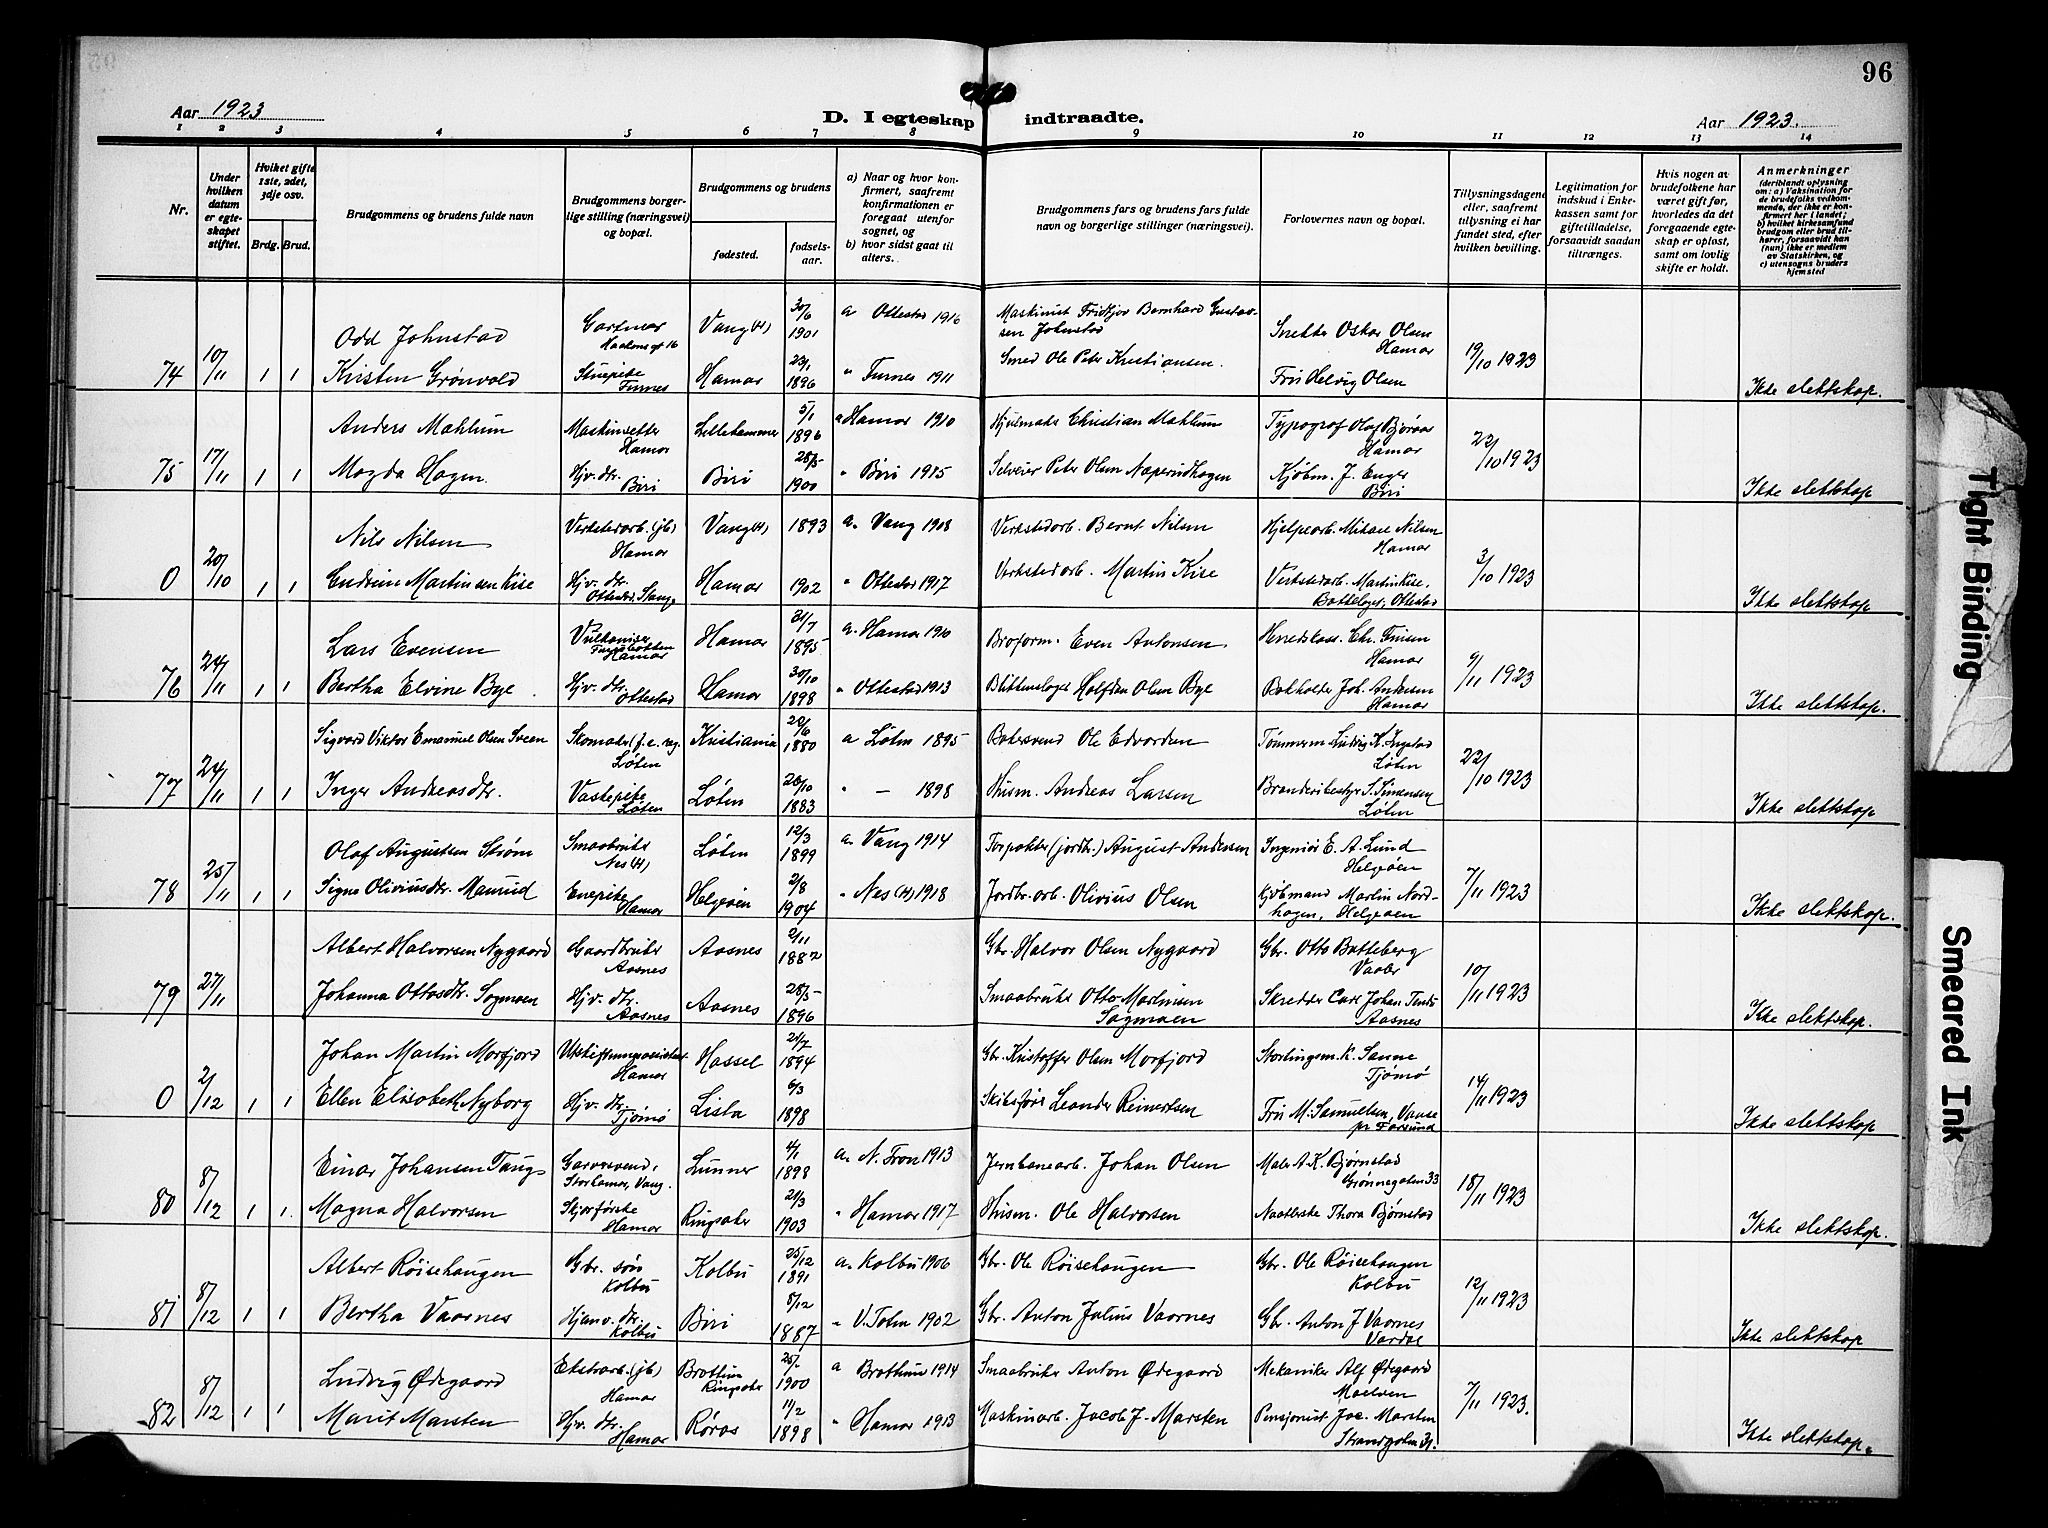 96
Aar 1923
D. I egteskap indtraadte.
Aar 1923.
1 2 3 4 5 6 7 8 9 10 11 12 13 14
Nr.
Under hvilken datum er egteskapet stiftet.
Hvilket gifte 1ste, 2det, 3dje osv.
Brdg. Brud.
Brudgommens og brudens fulde navn
Brudgommens borgerlige stilling (næringsvei) og bopæl.
Brudgommens og brudens
fødested.
fødselsaar.
a) Naar og hvor konfirmert, saafremt konfirmationen er foregaat utenfor sognet, og
b) hvor sidst gaat til alters.
Brudgommens fars og brudens fars fulde navn og borgerlige stillinger (næringsvei).
Forlovernes navn og bopæl.
Tillysningsdagene eller, saafremt tillysning ei har fundet sted, efter hvilken bevilling.
Legitimation for indskud i Enkekassen samt for giftetilladelse, forsaavidt saadan tiltrænges.
Hvis nogen av brudefolkene har været gift før, hvorledes da det foregaaende egteskap er opløst, samt om lovlig skifte er holdt.
Anmerkninger
(deriblandt oplysning om: a) Vaksination for de brudefolks vedkommende, der ikke er konfirmert her i landet; b) hvilket kirkesamfund brudgom eller brud tilhører, forsaavidt han (hun) ikke er medlem av Statskirken, og c) utensogns bruders hjemsted
Odd Johnstad Gartner Vang (H) 30/6 1901 a Ottestad 1916 Maskinist Fridtjov Bernhard Gustavsen Johnstad Snekker Oskar Olsen Hamar
74 10/11 1 1 Kristen Grønvold Stuepike Furnes Hamar 23/1 1896 " Furnes 1911 Smed Ole Peter Kristiansen. Fru Helvig Olsen 19/10 1923 Ikke slektskap.
Anders Mæhlum Maskinsetter Hamar Lillehammer 5/1 1896 a Hamar 1910 Hjulmaker Christian Mæhlum Typograf Olaf Bjøraas Hamar
75 17/11 1 1 Magda Hagen. Hjv. dtr. Biri Biri 28/5 1900 " Biri 1915 Selveier Peter Olsen Næperudhagen Kjøbm. J. Enger Biri 22/10 1923 Ikke slektskap
Nils Nilsen Verkstedarb. (jb) Hamar Vang (H) 1893 a. Vang 1908 Verkstedarb. Bernt Nilsen Hjelpearb. Mikael Nilsen Hamar
0 20/10 1 1 Endrine Martinsen Kise Hjv. dtr. Ottestad, Stange Hamar 1902 " Ottestad 1917 Verkstedarb. Martin Kise Verkstedarb. Martin Kise, Bekkelaget, Ottestad 3/10 1923 Ikke slektskap
Lars Evensen Vulkaniser Hamar Hamar 21/7 1895 a. Hamar 1910 Broform. Even Antonsen Herredskass. Chr. Finsen Hamar
76 24/11 1 1 Bertha Elvine Bye. Hjv. dtr. Ottestad Hamar 30/10 1898 " Ottestad 1913 Blikkenslager Halfdan Olsen Bye Bokholder Joh. Andersen Hamar 9/11 1923 Ikke slektskap.
Sigvard Viktor Emanuel Olsen Sveen Skomaker Løten Kristiania 20/6 1880 a Løten 1895 Bakersvend Ole Edvardsen Tømmerm. Ludvig K. Ingstad Løten
77 24/11 1 1 Inger Andreasdtr. Vaskepike Løten Løten 20/10 1883 " — 1898 Husm. Andreas Larsen Brænderibestyr. S. Simensen Løten 22/10 1923 Ikke slektskap
Olaf Augustsen Strøm Smaabruker Nes (H) Løten 12/3 1899 a. Vang 1914 Forpakter (jordbr.) August Andersen Ingeniør E. A. Lund Helgøen
78 25/11 1 1 Signe Oliviusdtr. Manrud Enepike Hamar Helgøen 2/8 1904 " Nes (H) 1918 Jordbr. arb. Olivius Olsen Kjøbmand Martin Nordhagen, Helgøen 7/11 1923 Ikke slektskap.
Albert Halvorsen Nygaard Gaardbruker Aasnes Aasnes 2/11 1882 Gbr. Halvor Olsen Nygaard Gbr. Otto Batteberg Vaaler
79 27/11 Johanna Ottosdtr. Sagmoen Hjv. dtr. Aasnes Aasnes 28/5 1896 Smaabruker Otto Martinsen Sagmoen Skredder Carl Johan Aasnes 10/11 1923 Ikke slektskap.
Johan Martin Morfjord Utskiftningsassistent Hamar Hassel 21/7 1894 Gbr. Kristoffer Olsen Morfjord Stortingsm. K. Sanne Tjømø
0 2/12 1 1 Ellen Elisabeth Nyborg Hjv. dtr. Tjømø Lista 6/3 1898 Skibsfører Leander Reinertsen Fru M. Samuelsen, Vanse pr Farsund 14/11 1923 Ikke slektskap
Einar Johansen Taug- Garversvend, Storhamar, Vang. Lunner 4/1 1898 a. N. Fron 1913 Jernbanearb. Johan Olsen Maler A. K. Bjørnstad Grønnegaten 33
80 8/12 1 1. Magna Halvorsen Skjorterske Hamar Ringsaker 21/3 1903 " Hamar 1917 Husm. Ole Halvorsen Naatlerske Thora Bjørnstad 18/11 1923 Ikke slektskap.
Albert Røisehaugen Gbr. søn Kolbu Kolbu 25/12 1891 a. Kolbu 1906 Gbr. Ole Røisehaugen Gbr. Ole Røisehaugen Kolbu
81 8/12 1 1 Bertha Vaarnes Hjemv. dtr. Kolbu Biri 8/12 1887 " V. Toten 1902 Gbr. Anton Julius Vaarnes Gbr. Anton J Vaarnes Vardal 12/11 1923 Ikke slektskap
Ludvig Ødegaard Ekstraarb. (jb) Hamar Brøttum Ringsaker 1900 a Brøttum 1914 Smaabruker Anton Ødegaard Mekaniker Alf Ødegaard Moelven
82 8/12 1 1 Marit Marsten Hjv. dtr. Hamar Røros 11/2 1898 " Hamar 1913 Maskinarb. Jacob J. Marsten Pensjonist Jac. Marsten Strandgaten 31. 7/11 1923. Ikke slektskap.
Tight Binding
Smeared Ink